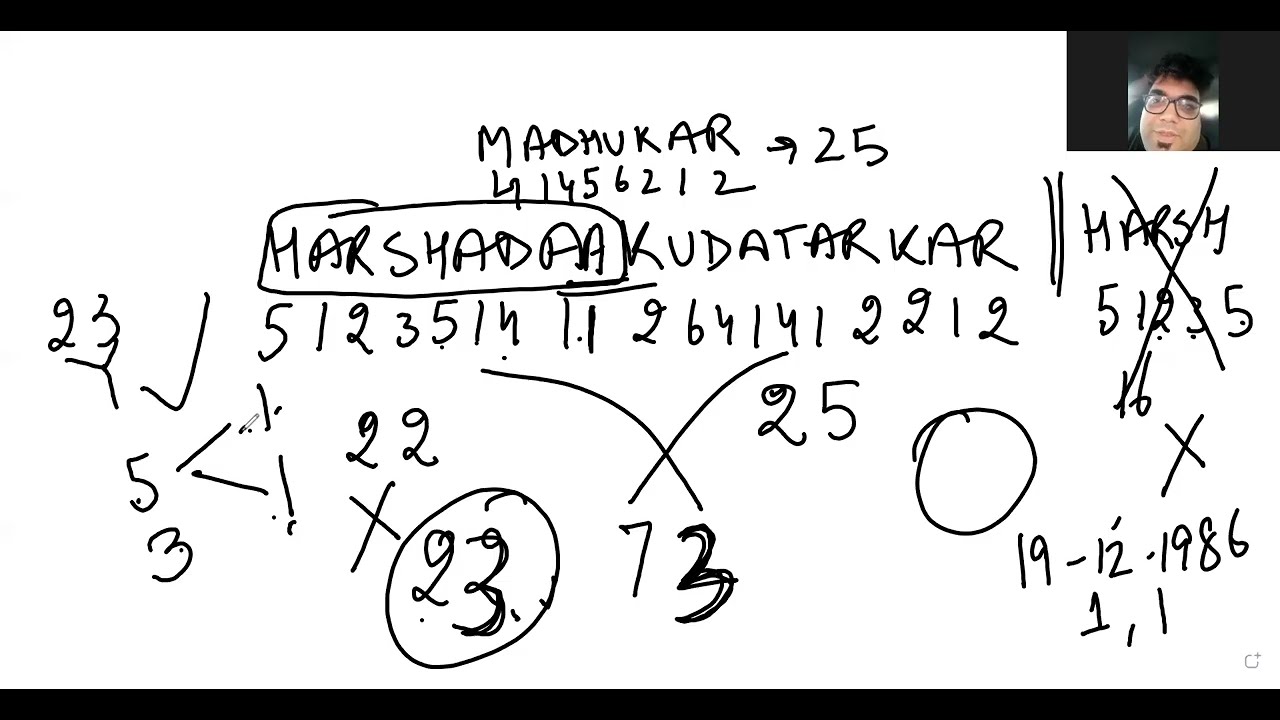 MADHUKAR → 25
4 1 4 5 6 2 1 2
HARSHADAA KUDATARKAR
5 1 2 3 5 1 4 1 1 2 6 4 1 4 1 2 2 1 2
HARSH
5 1 2 3 5
16
23
25
1
22
5
1
3
23
73
19-12-1986
1, 1